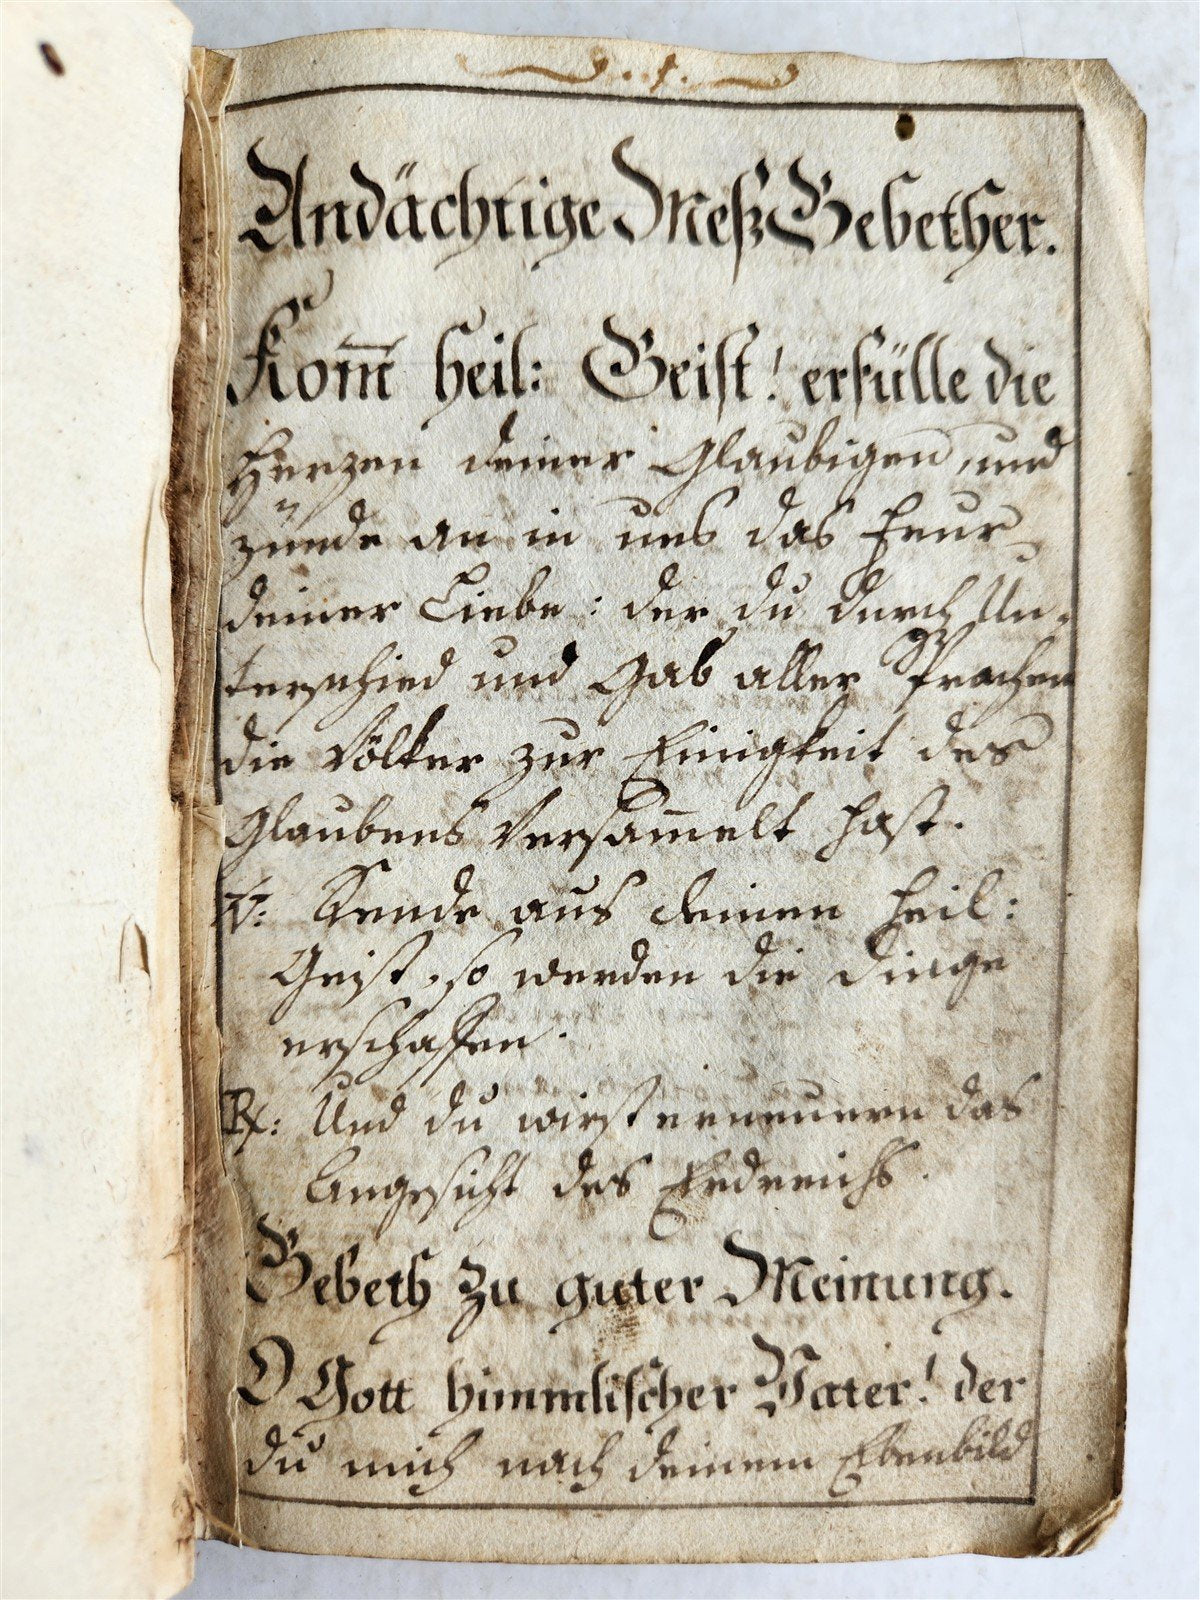 .1.
Andächtige Meß Gebether.
Kom̄ heil: Geist! erfülle die
Herzen deiner Glaubigen, und
zünde an in uns das Feur
deiner Liebe: der du durch Un-
terschied und Gab aller Sprachen
die Völker zur Einigkeit des
Glaubens Versam̄elt hast.
℣: Sende aus deinen heil:
Geist, so werden die dinge
erschaffen.
℟: Und du wirst erneuern das
Angesicht des Erdreichs.
Gebeth zu guter Meinung.
O Gott himmlischer Vater! der
du mich nach deinem Ebenbild